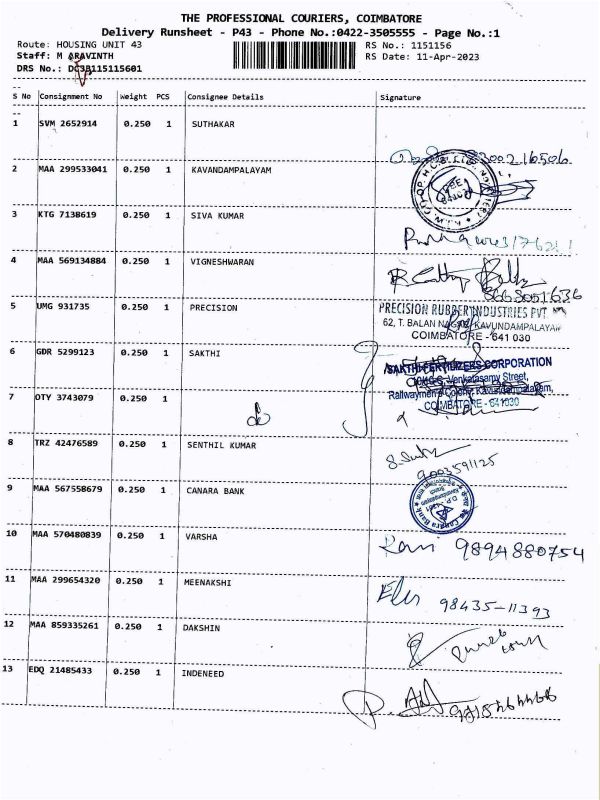 THE PROFESSIONAL COURIERS, COIMBATORE
Delivery Runsheet - P43 - Phone No.:0422-3505555 - Page No.:1
Route: HOUSING UNIT 43 RS No.: 1151156
Staff: M ARAVINTH RS Date: 11-Apr-2023
DRS No.: DC3B115115601
S No Consignment No Weight PCS Consignee Details Signature
1 SVM 2652914 0.250 1 SUTHAKAR
2 MAA 299533041 0.250 1 KAVANDAMPALAYAM
3 KTG 7138619 0.250 1 SIVA KUMAR
4 MAA 569134884 0.250 1 VIGNESHWARAN
8663051636
5 UMG 931735 0.250 1 PRECISION
PRECISION RUBBER INDUSTRIES PVT
62, T. BALAN NAGAR, KAVUNDAMPALAYAM
COIMBATORE - 641 030
6 GDR 5299123 0.250 1 SAKTHI
SAKTHI FERTILIZERS CORPORATION
Venkatasamy Street,
COIMBATORE - 641030
7 OTY 3743079 0.250 1
8 TRZ 42476589 0.250 1 SENTHIL KUMAR
9003591125
9 MAA 567558679 0.250 1 CANARA BANK
Canara Bank
10 MAA 570480839 0.250 1 VARSHA
9894880754
11 MAA 299654320 0.250 1 MEENAKSHI
98435-11393
12 MAA 859335261 0.250 1 DAKSHIN
13 EDQ 21485433 0.250 1 INDENEED